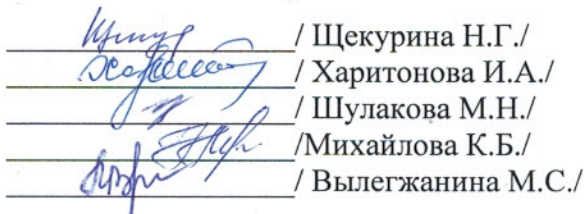 / Щекурина Н.Г./
/ Харитонова И.А./
/ Шулакова М.Н./
/Михайлова К.Б./
/ Вылегжанина М.С./